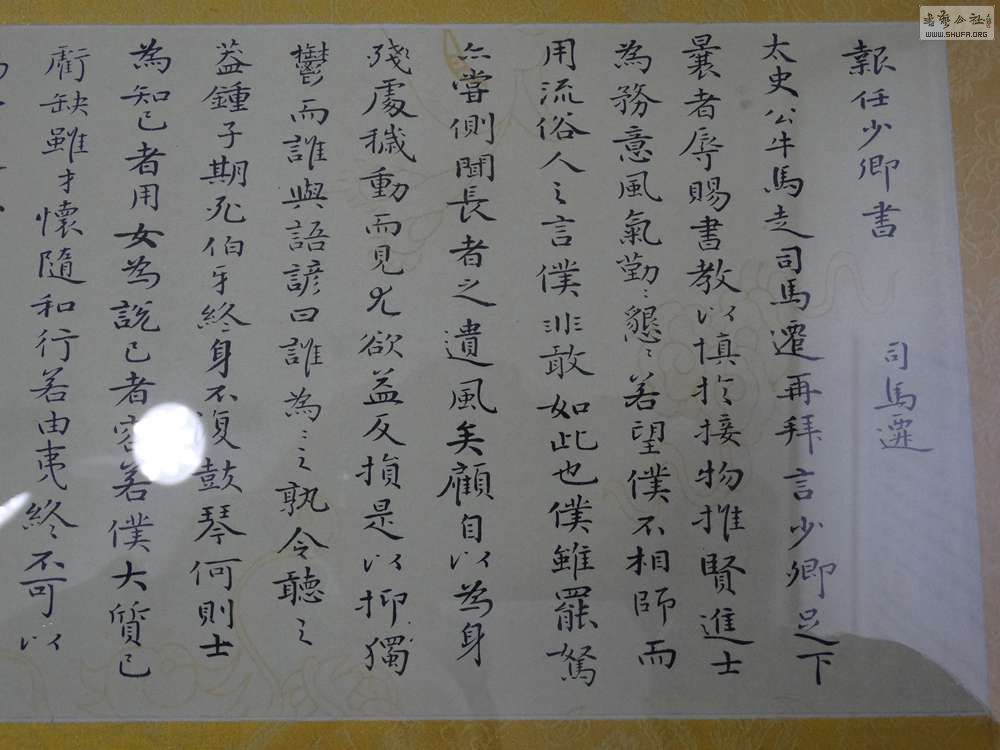 報任少卿書 司馬遷
太史公牛馬走司馬遷再拜言少卿足下
曩者辱賜書教以慎於接物推賢進士
為務意風氣勤〻懇〻若望僕不相師而
用流俗人之言僕非敢如此也僕雖罷駑
亦嘗側聞長者之遺風矣顧自以為身
殘處穢動而見尤欲益反損是以抑獨
鬱而誰與語諺曰誰為〻之孰令聽之
葢鍾子期死伯牙終身不復鼓琴何則士
為知己者用女為說己者容若僕大質已
虧缺雖才懷隨和行若由夷終不可以
書藝公社
WWW.SHUFA.ORG